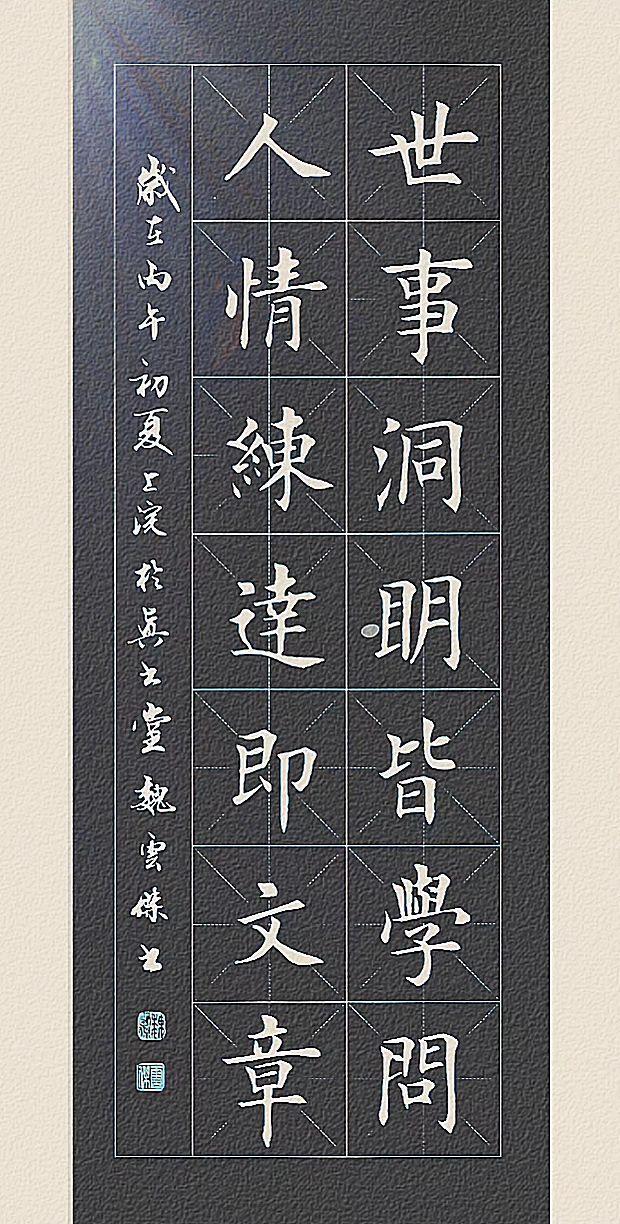 世事洞明皆學問
人情練達即文章
歲在丙午初夏上浣於真書堂魏雲傑書